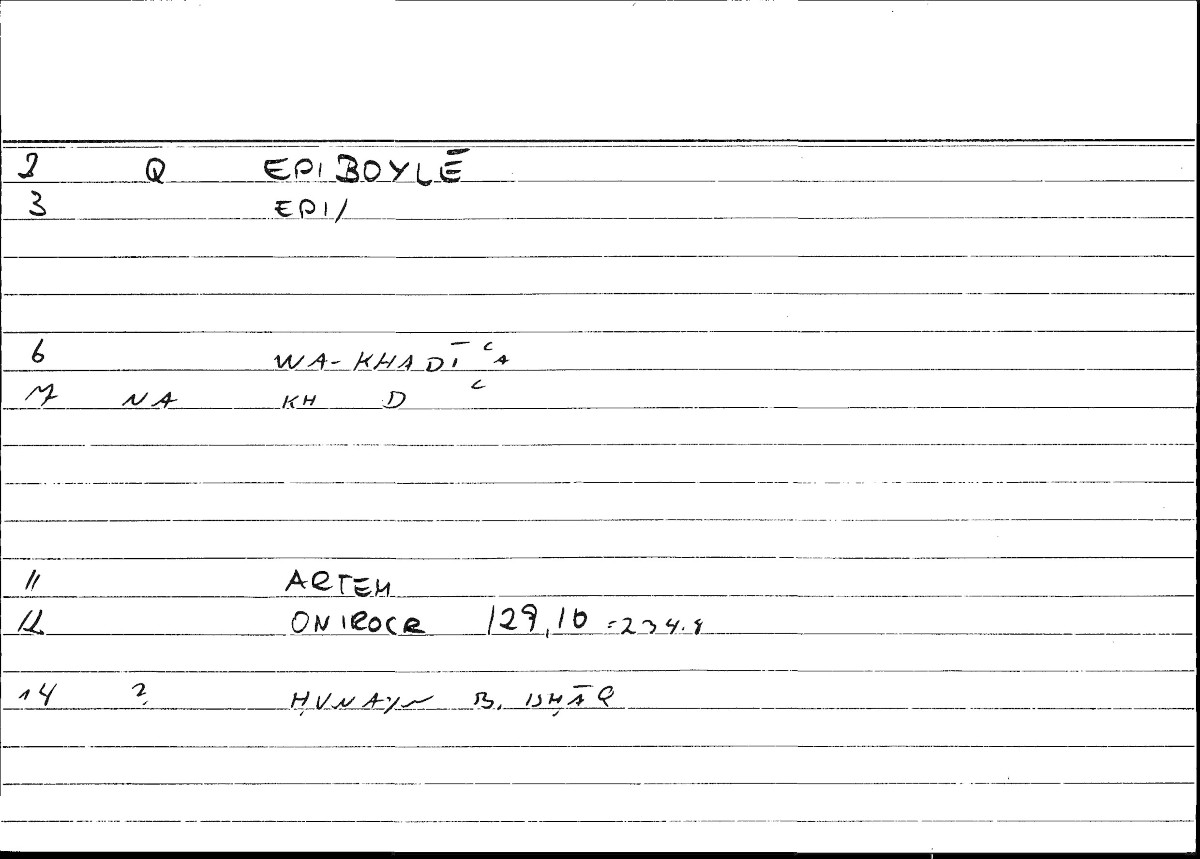 2 Q EPIBOYLĒ
3 EPI/
6 WA-KHADĪʿA
7 NA KH D ʿ
11 ARTEM
12 ONIROCR 129,10 =234.8
14 ? ḤUNAYN B. ISḤĀQ